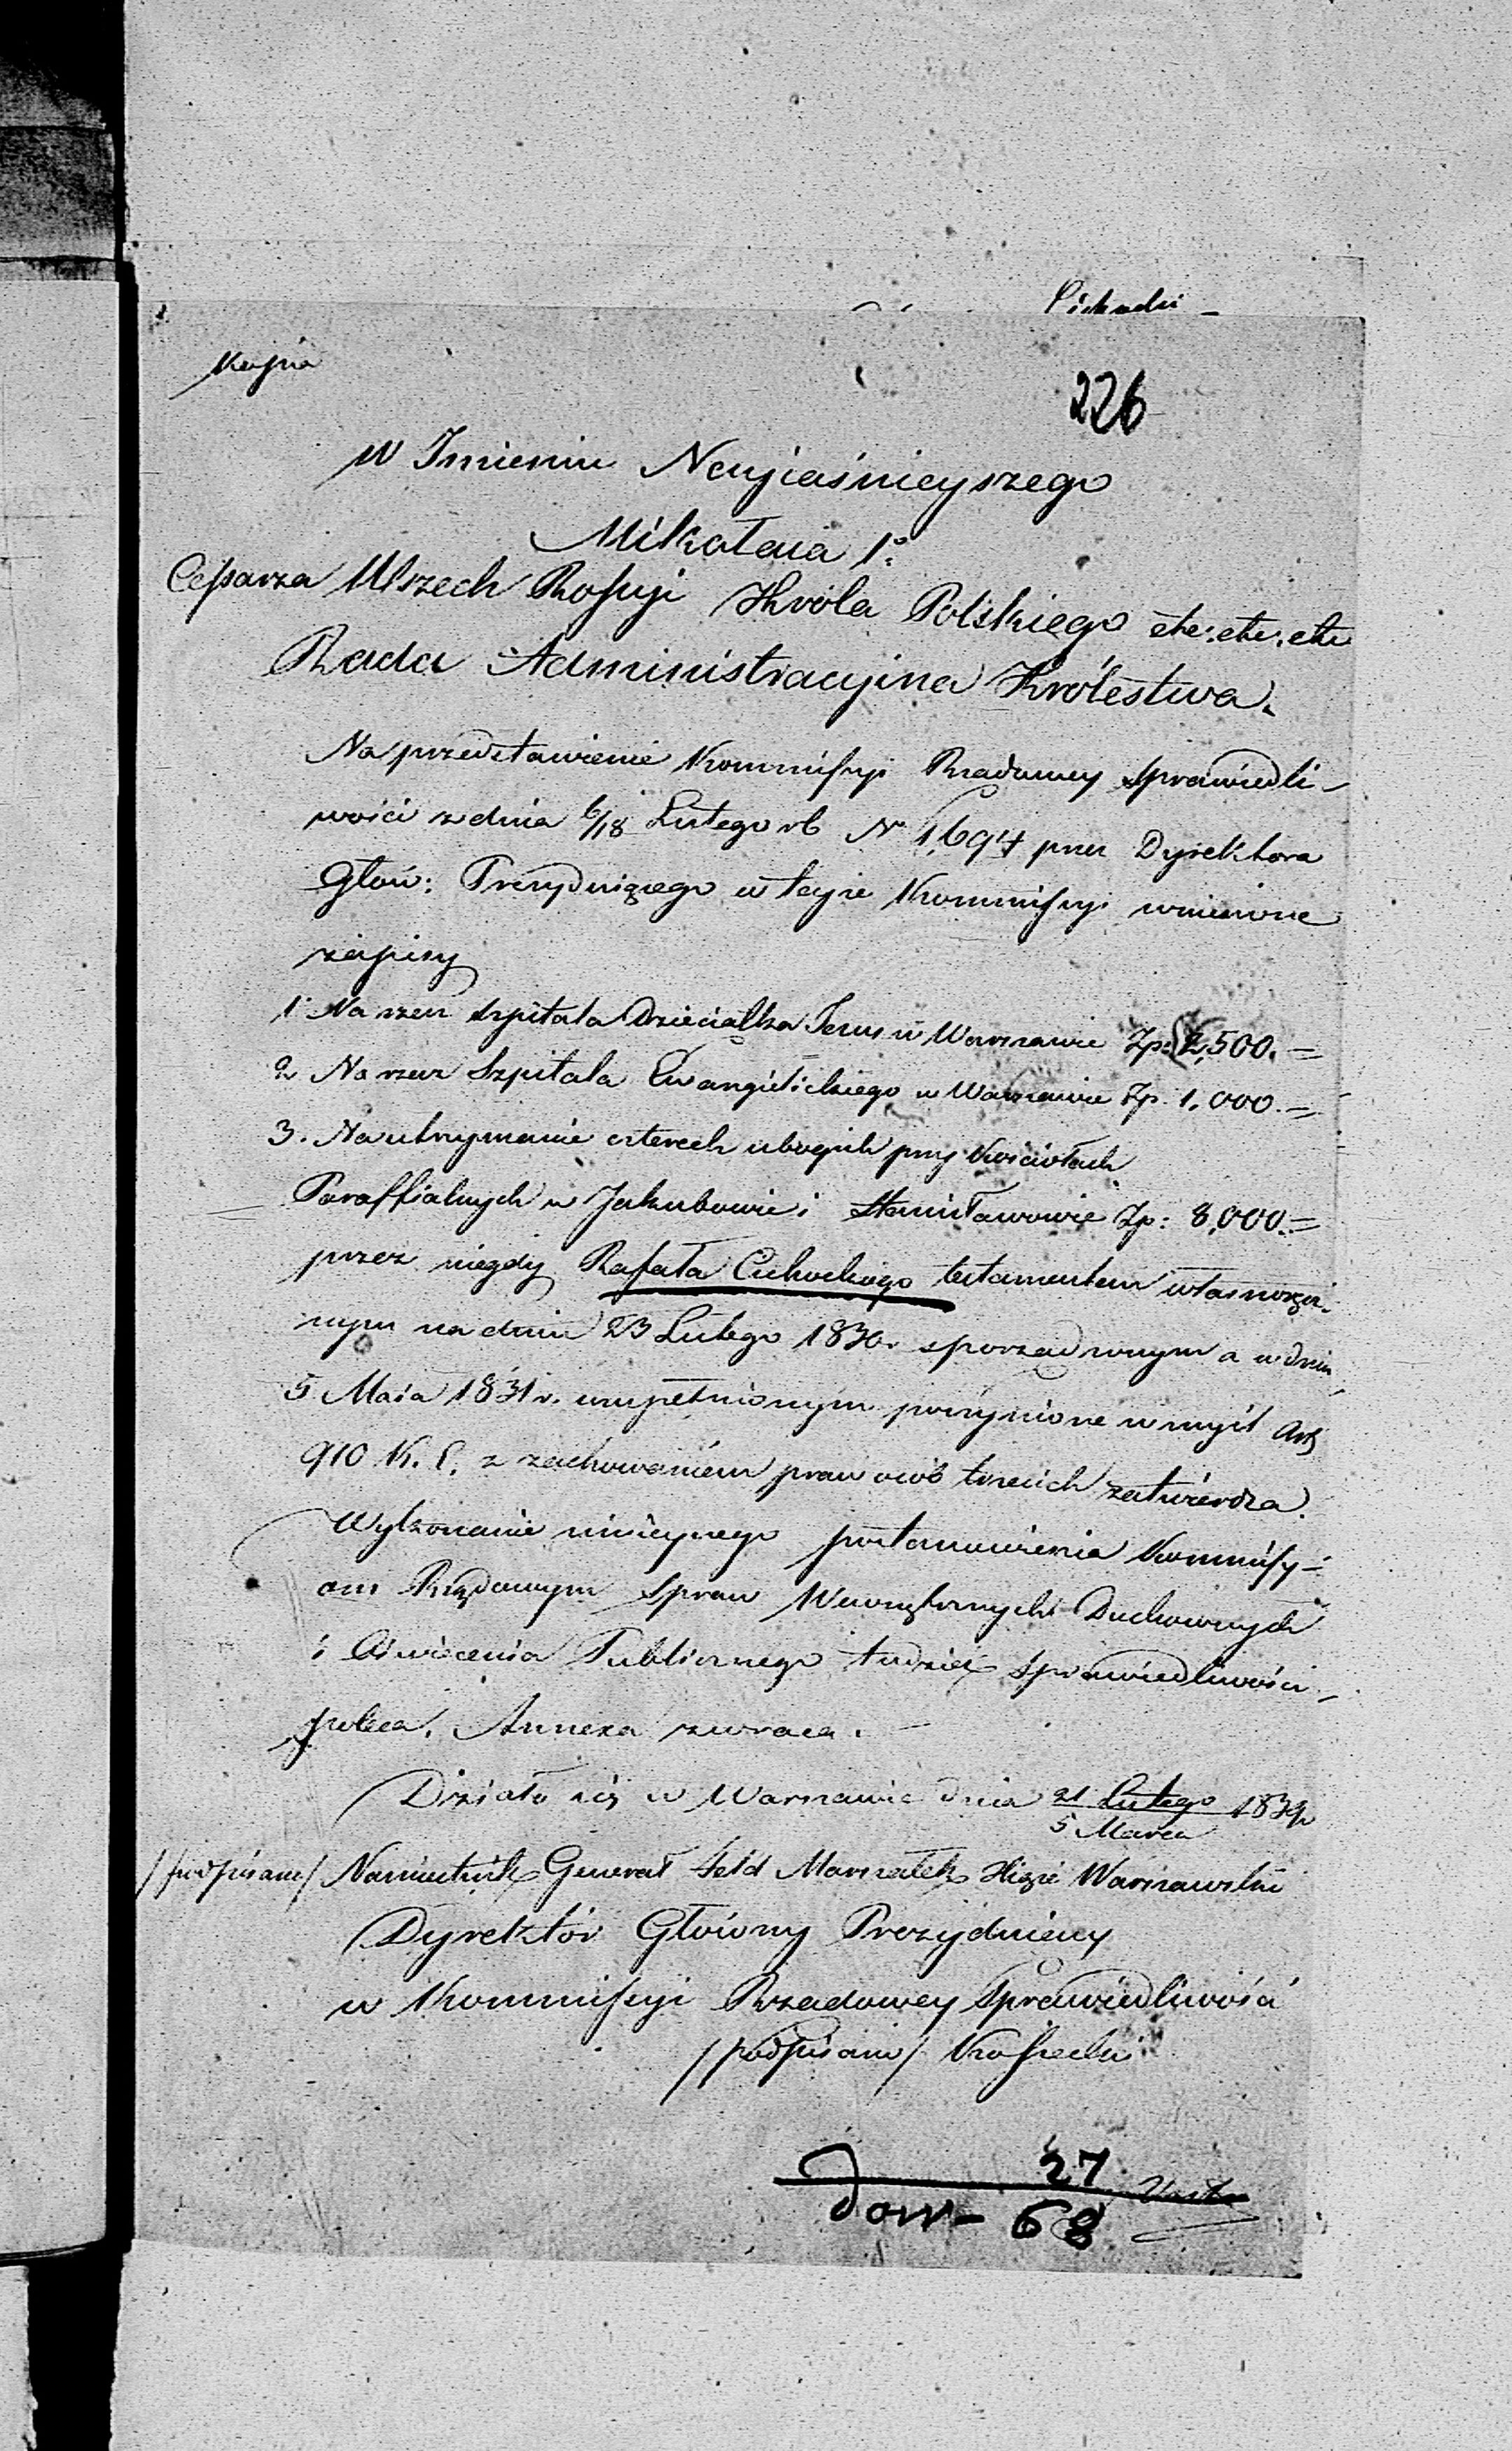 Cichocki -
Kopia
226
W Imieniu Nayjaśnieyszego
Mikołaia 1º
Cessarza Wszech Rossyji Króla Polskiego etc: etc: etc
Rada Administracyjna Królestwa.
Na przedstawienie Kommissyji Rządowey Sprawiedli-
wości z dnia 6/18 Lutego rb Nr 1,694 przez Dyrektora
Głów: Prezyduiącego w teyże Kommissyi wniesione
zapisy
1. Na rzecz Szpitala Dzieciątka Jezus w Warszawie Zp: 2,500. =
2 Na rzecz Szpitala Ewangielickiego w Warszawie Zp. 1,000. =
3. Na utrzymanie czterech ubogich przy Kościołach
Paraffialnych w Jakubowie i Stanisławowie Zp: 8,000. =
przez niegdy Rafała Cichockiego testamentem własnoręcz-
nym na dniu 23 Lutego 1830r sporządzonym a w dniu
5 Maia 1831 r. uzupełnionym poczynione w myśl Art
910 K. C. z zachowaniem praw osób trzecich zatwierdza.
Wykonanie ninieyszego postanowienia Kommissy-
om Rządowym Spraw Wewnętrznych Duchownych
i Oświecenia Publicznego tudzież Sprawiedliwości
poleca. Annexa zwraca. -
Działo się w Warszawie dnia 21 Lutego 1839r
5 Marca
/podpisano/ Namiestnik Generał Feld Marszałek Xiąże Warszawski
Dyrektór Główny Prezyduiący
w Kommissyji Rządowey Sprawiedliwości
/podpisano/ Kossecki
27
dow - 68